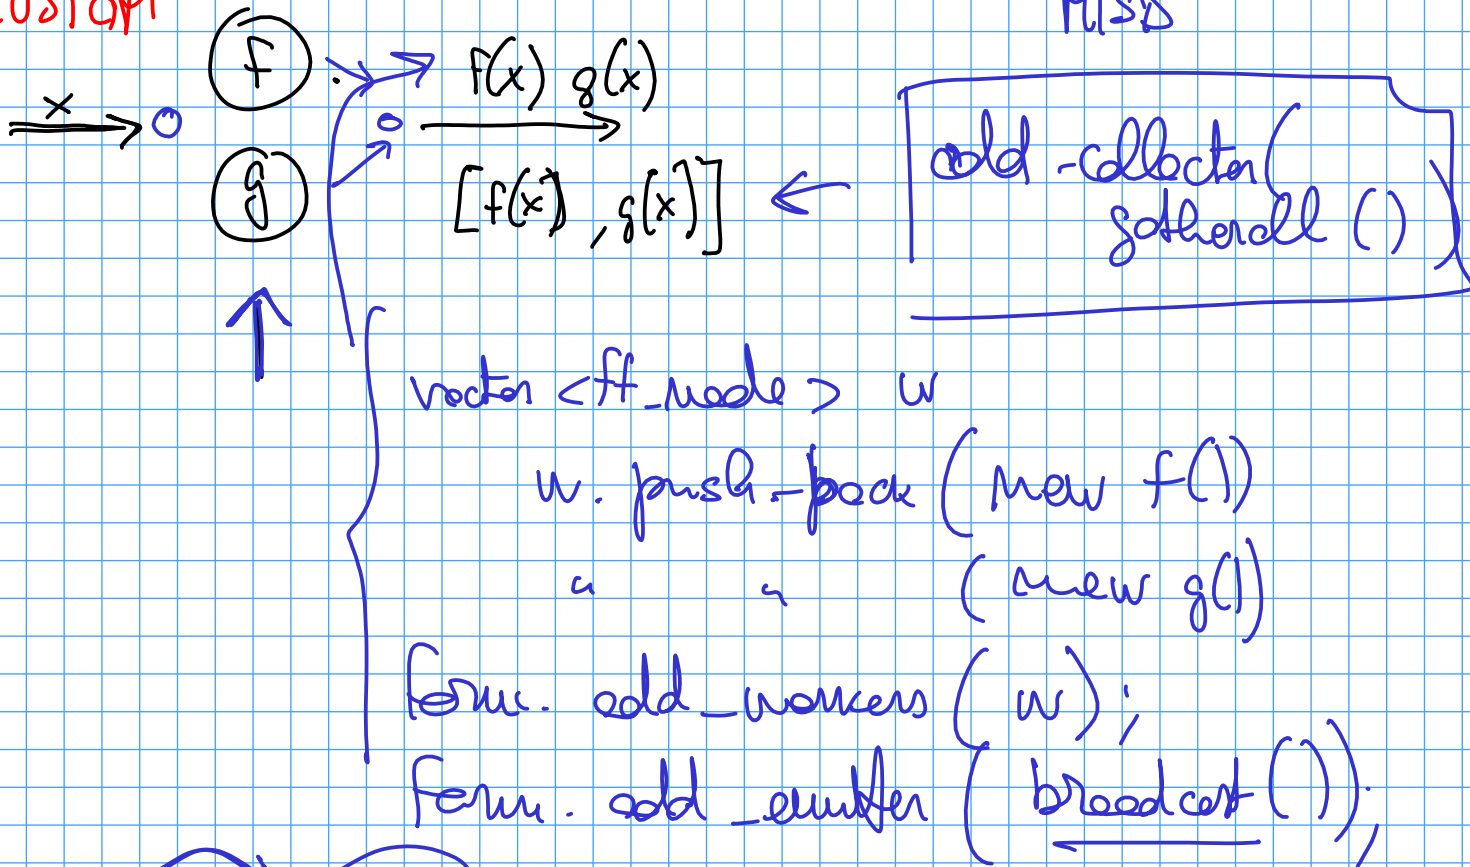 MISD
f
x
f(x) g(x)
g
[f(x), g(x)]
add_collector(
gatherall())
vector <ff_node> w
w.push_back(new f())
" " (new g())
farm.add_workers(w);
farm.add_emitter(broadcast());